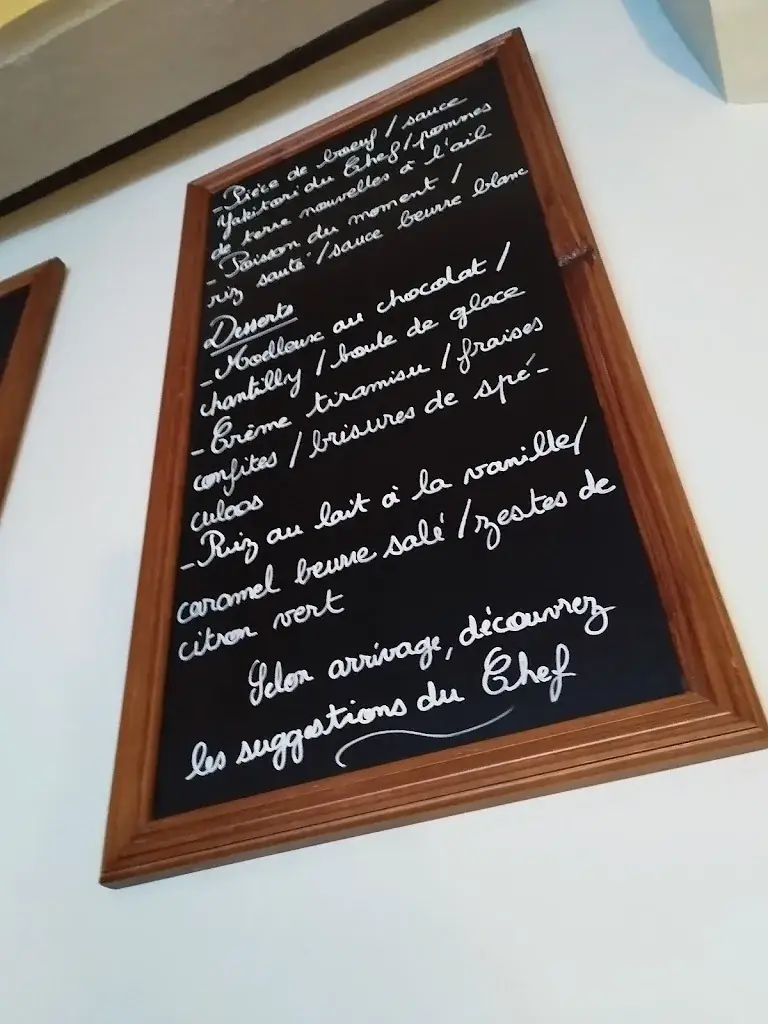 - Pièce de boeuf / sauce
Yakitori du Chef / pommes
de terre nouvelles à l'ail
- Poisson du moment /
riz sauté / sauce beurre blanc
Desserts
- Moelleux au chocolat /
chantilly / boule de glace
- Crème tiramisu / fraises
confites / brisures de spé-
culoos
- Riz au lait à la vanille /
caramel beurre salé / zestes de
citron vert
Selon arrivage, découvrez
les suggestions du Chef